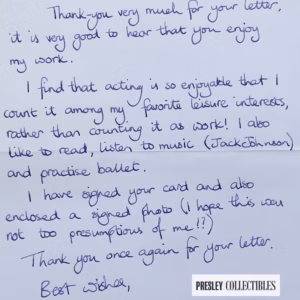 Thank-you very much for your letter,
it is very good to hear that you enjoy
my work.
I find that acting is so enjoyable that I
count it among my favorite leisure interests,
rather than counting it as work! I also
like to read, listen to music (Jack Johnson)
and practise ballet.
I have signed your card and also
enclosed a signed photo (I hope this was
not too presumptious of me!?)
Thank you once again for your letter.
Best wishes,
PRESLEY COLLECTIBLES